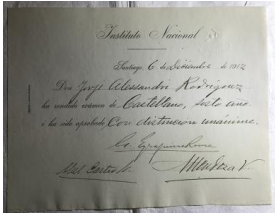 Instituto Nacional
Santiago, 6 de Diciembre de 1912
Don Jorge Alessandri Rodriguez
ha rendido exámen de Castellano, sesto año
i ha sido aprobado Con distincion unánime.